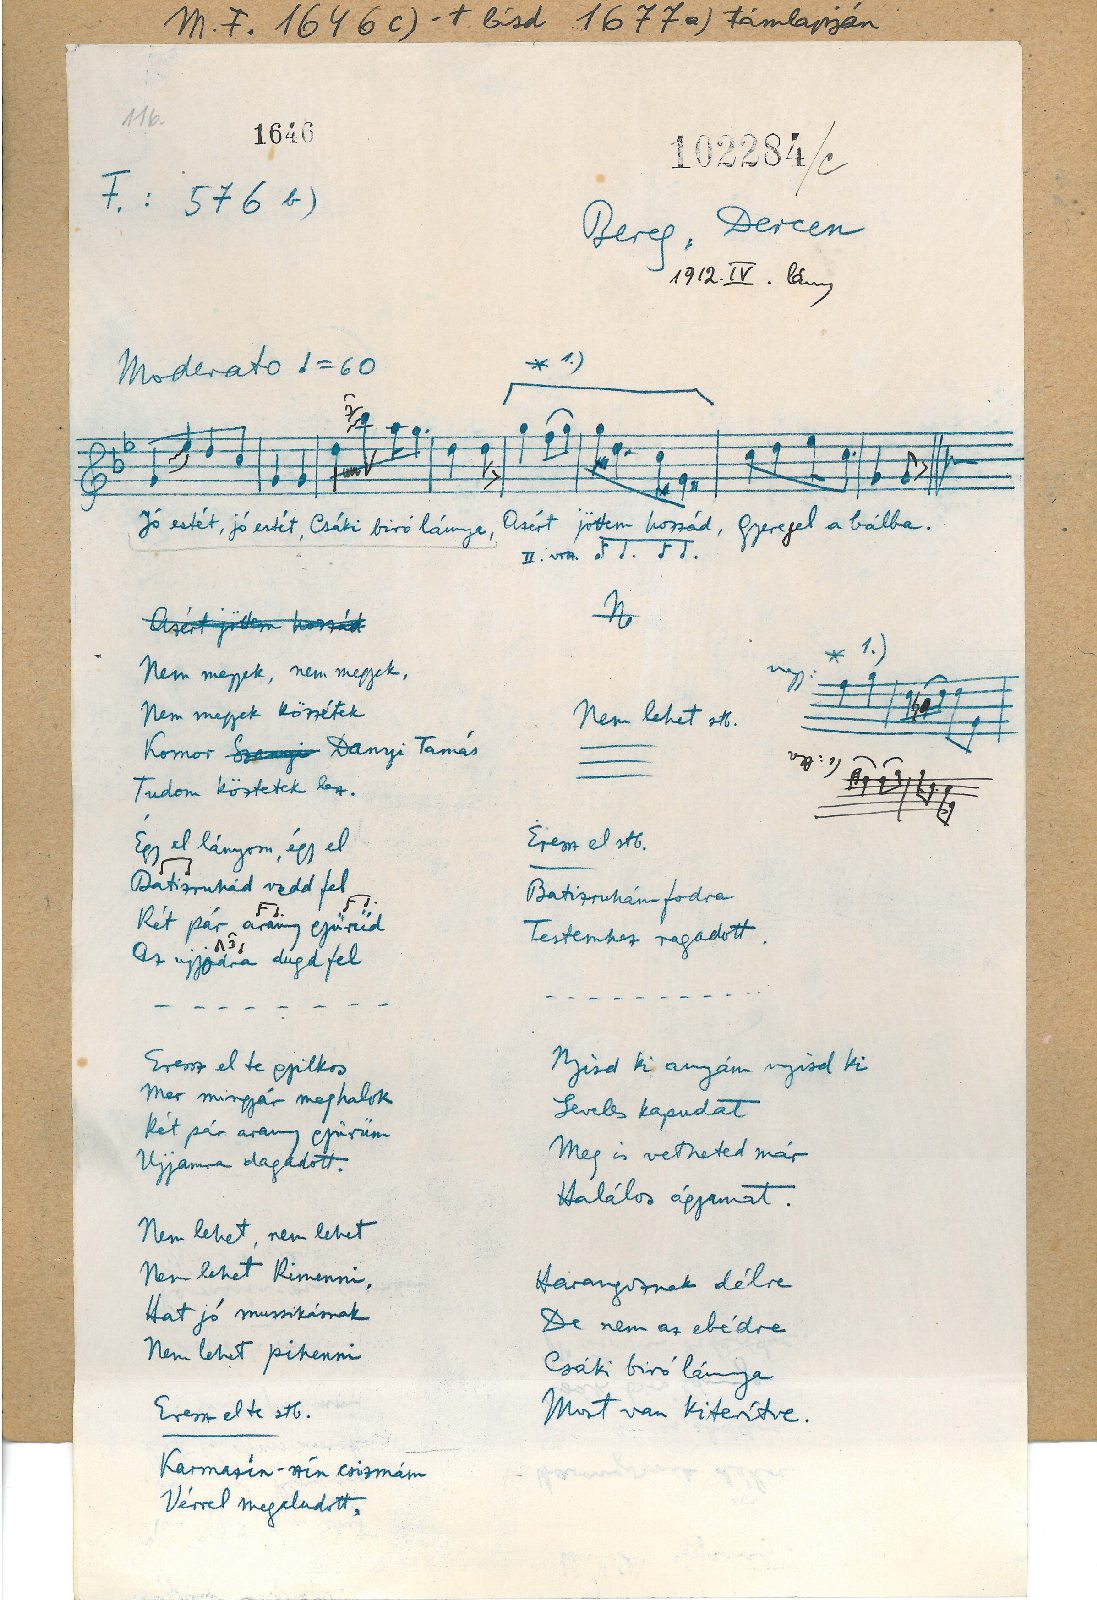 M. F. 1646 c)-t lásd 1677 a) támlapján
116.
1646
102284/c
F.: 576 b)
Bereg, Dercen
1912. IV. lány
Moderato ♩=60
* 1.)
Jó estét, jó estét, Csáki biró lánya, Azért jöttem hozzád, Gyeregel a bálba.
II. vsz.
Azért jöttem hozzád
Nem megyek, nem megyek,
Nem megyek közzétek
Komor Danyi Tamás
Tudom köztetek lesz.
Égy el lányom, égy el
Batizruhád vedd fel
Két pár arany gyűrűd
Az ujjodra dugd fel
Eressz el te gyilkos
Mer mingyár meghalok
Két pár arany gyűrűm
Ujjamra dagadott.
Nem lehet, nem lehet
Nem lehet Kimenni,
Hat jó muzsikásnak
Nem lehet pihenni
Eressz el te stb.
Karmazsin-szín csizmám
Vérrel megaludott.
vagy: * 1.)
Nem lehet stb.
Eressz el stb.
Batizruhám fodra
Testemhez ragadott.
Nyisd ki anyám nyisd ki
Leveles kapudat
Meg is vetheted már
Halálos ágyamat.
Harangoznak délre
De nem az ebédre
Csáki biró lánya
Most van kiterítve.